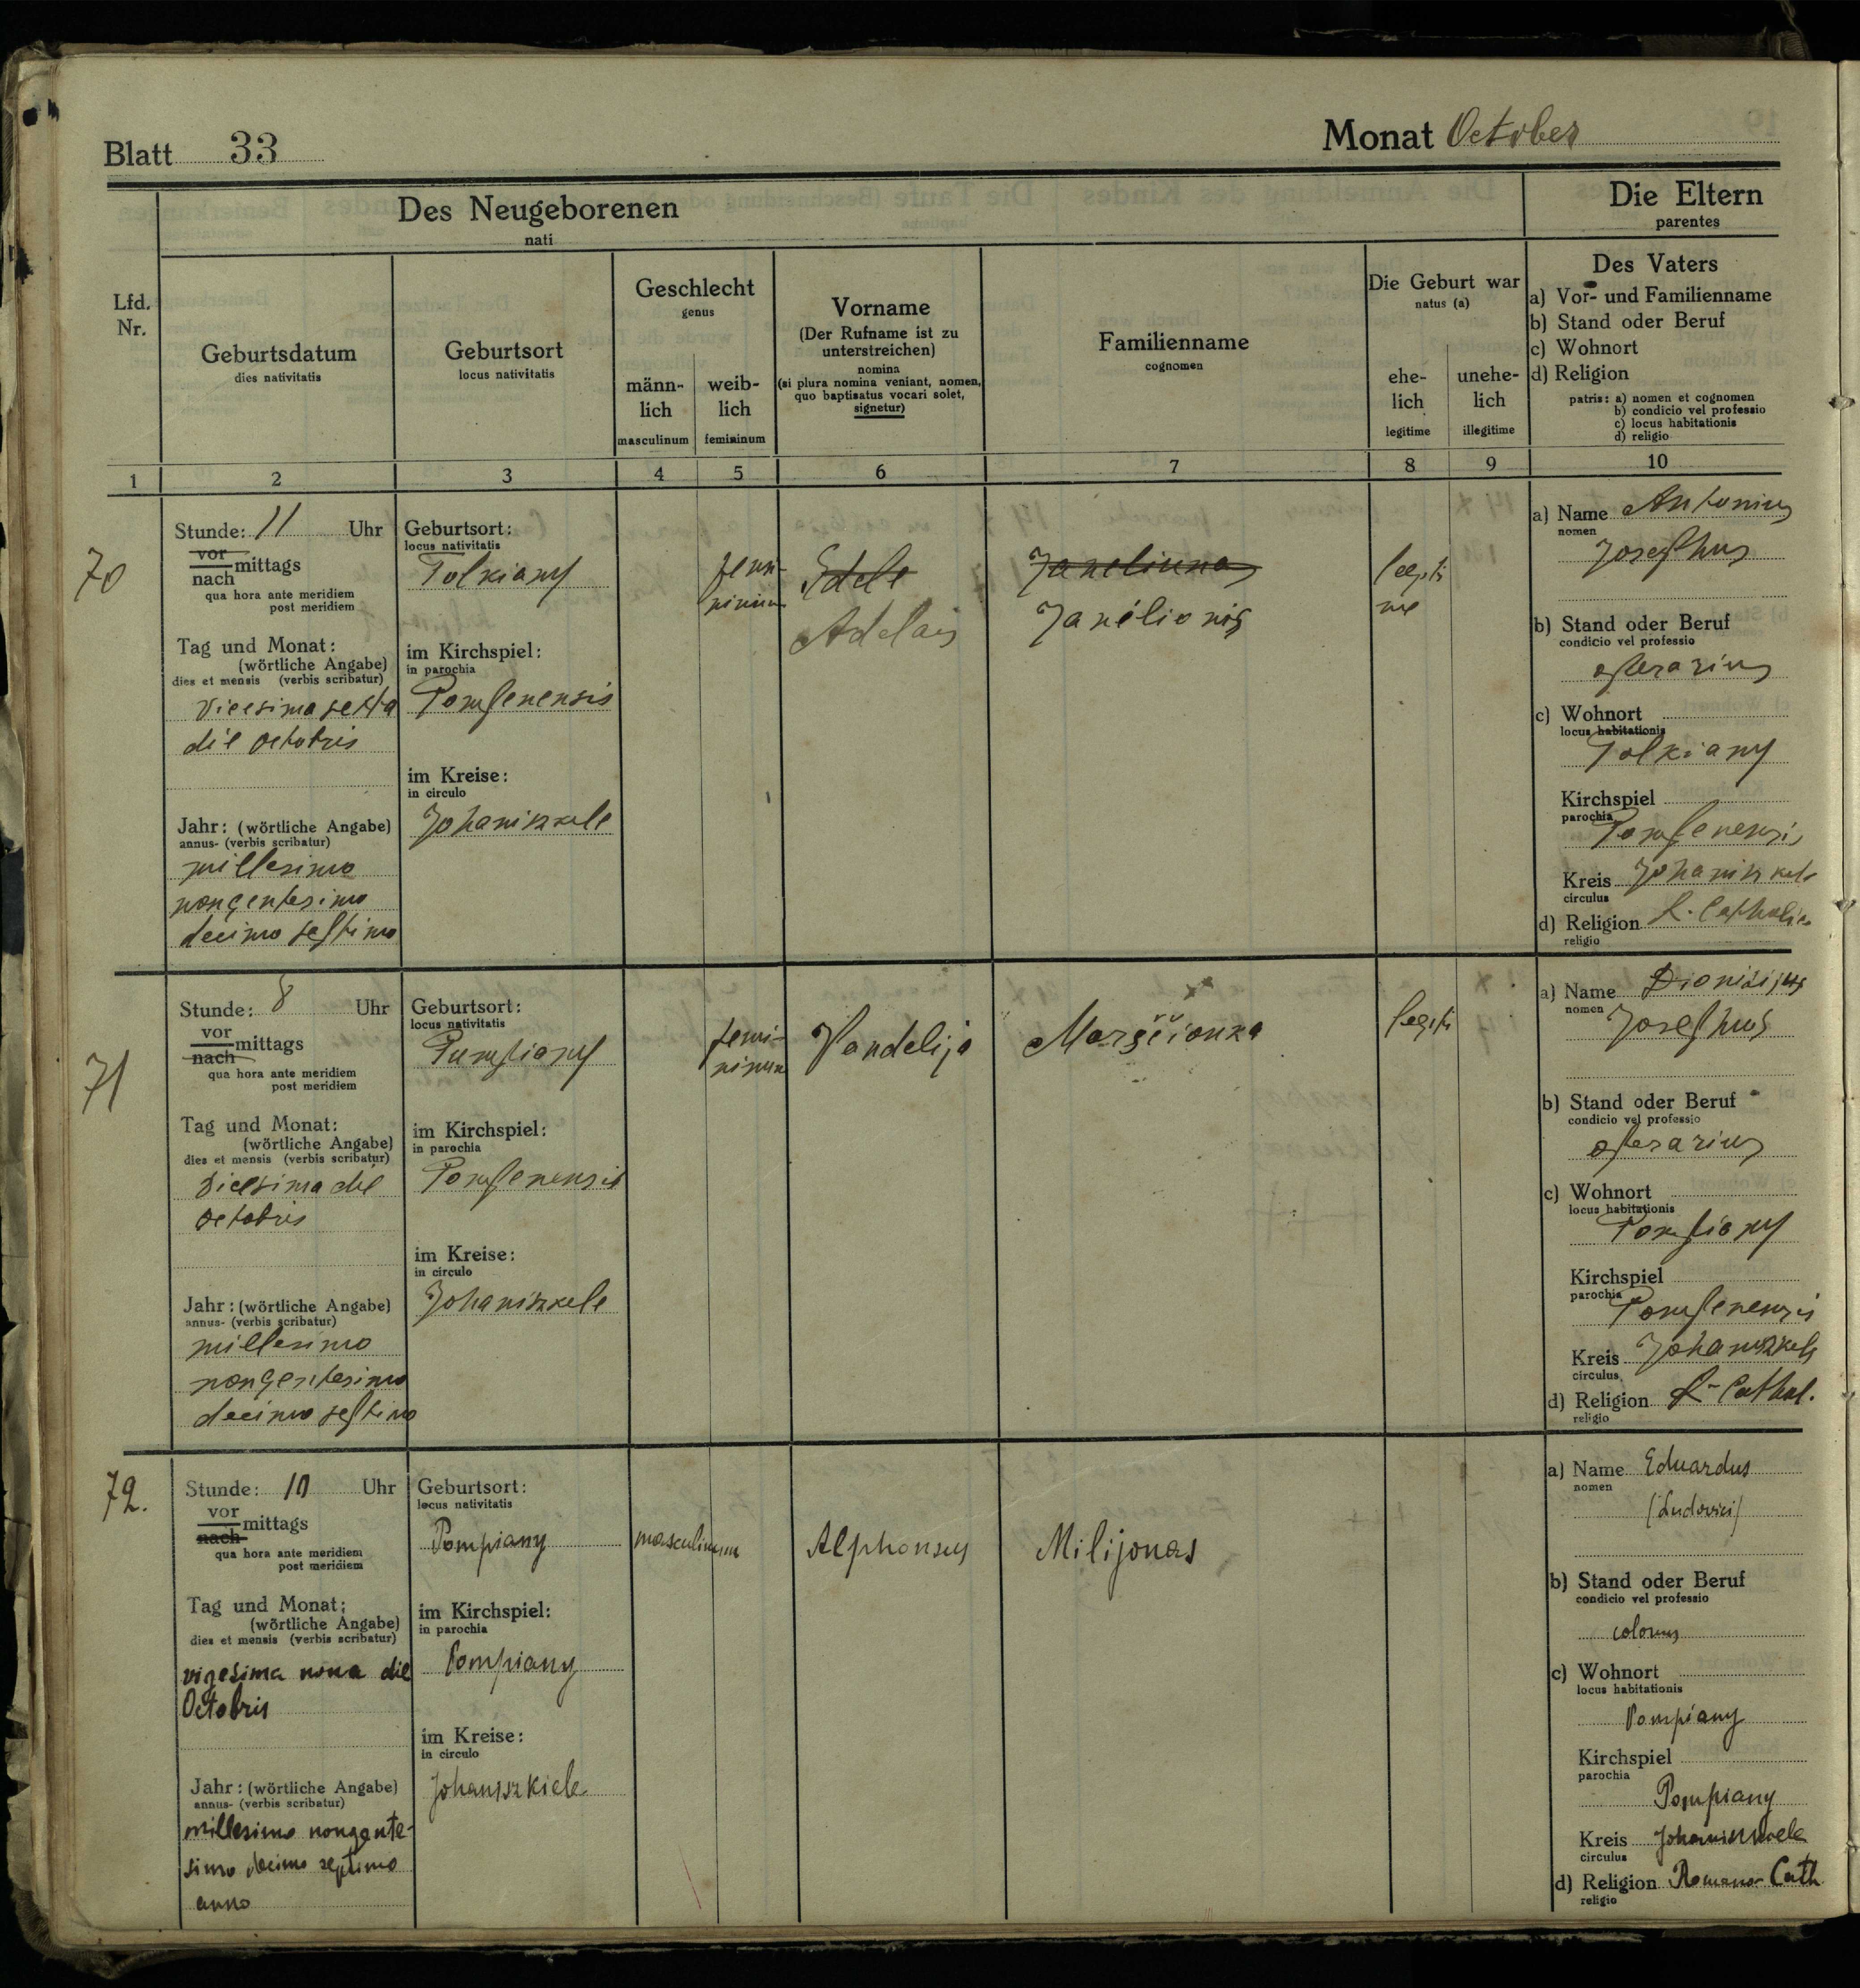 Blatt 33
Monat October
Des Neugeborenen
nati
Die Eltern
parentes
Lfd.
Nr.
Geburtsdatum
dies nativitatis
Geburtsort
locus nativitatis
Geschlecht
genus
männ-
lich
masculinum
weib-
lich
femininum
Vorname
(Der Rufname ist zu
unterstreichen)
nomina
(si plura nomina veniant, nomen,
quo baptisatus vocari solet,
signetur)
Familienname
cognomen
Die Geburt war
natus (a)
ehe-
lich
legitime
unehe-
lich
illegitime
Des Vaters
a) Vor- und Familienname
b) Stand oder Beruf
c) Wohnort
d) Religion
patris: a) nomen et cognomen
b) condicio vel professio
c) locus habitationis
d) religio
1 2 3 4 5 6 7 8 9 10
70
Stunde: 11 Uhr
vor
nach mittags
qua hora ante meridiem
post meridiem
Tag und Monat:
(wörtliche Angabe)
dies et mensis (verbis scribatur)
Vicesima sexta
die octobris
Jahr: (wörtliche Angabe)
annus- (verbis scribatur)
millesimo
nongentesimo
decimo septimo
Geburtsort:
locus nativitatis
Tolkiany
im Kirchspiel:
in parochia
Pompenensis
im Kreise:
in circulo
Johaniszkele
femi-
ninum
Edele
Adelais
Janeliunas
Janélionis
legiti
me
a) Name Antonius
nomen
Josephus
b) Stand oder Beruf
condicio vel professio
operarius
c) Wohnort
locus habitationis
Tolkiany
Kirchspiel
parochia
Pompenensis
Kreis Johaniszkele
circulus
d) Religion R. Catholic
religio
71
Stunde: 8 Uhr
vor
nach mittags
qua hora ante meridiem
post meridiem
Tag und Monat:
(wörtliche Angabe)
dies et mensis (verbis scribatur)
Vicesima die
octobris
Jahr: (wörtliche Angabe)
annus- (verbis scribatur)
millesimo
nongentesimo
decimo septimo
Geburtsort:
locus nativitatis
Pumpiany
im Kirchspiel:
in parochia
Pompenensis
im Kreise:
in circulo
Johaniszkele
femi-
ninum
Vandelija
legiti
a) Name Dionisijus
nomen
Josephus
b) Stand oder Beruf
condicio vel professio
operarius
c) Wohnort
locus habitationis
Pompiany
Kirchspiel
parochia
Pompenensis
Kreis Johaniszkele
circulus
d) Religion R-Cathol.
religio
72.
Stunde: 10 Uhr
vor
nach mittags
qua hora ante meridiem
post meridiem
Tag und Monat:
(wörtliche Angabe)
dies et mensis (verbis scribatur)
vigesima nona die
Octobris
Jahr: (wörtliche Angabe)
annus- (verbis scribatur)
millesimo nongente-
simo decimo septimo
anno
Geburtsort:
locus nativitatis
Pompiany
im Kirchspiel:
in parochia
Pompiany
im Kreise:
in circulo
Johaniszkiele
masculinum
Alphonsus
Milijonas
a) Name Eduardus
nomen
(Ludovici)
b) Stand oder Beruf
condicio vel professio
colonus
c) Wohnort
locus habitationis
Pompiany
Kirchspiel
parochia
Pompiany
Kreis
circulus
d) Religion Romano-Cath
religio